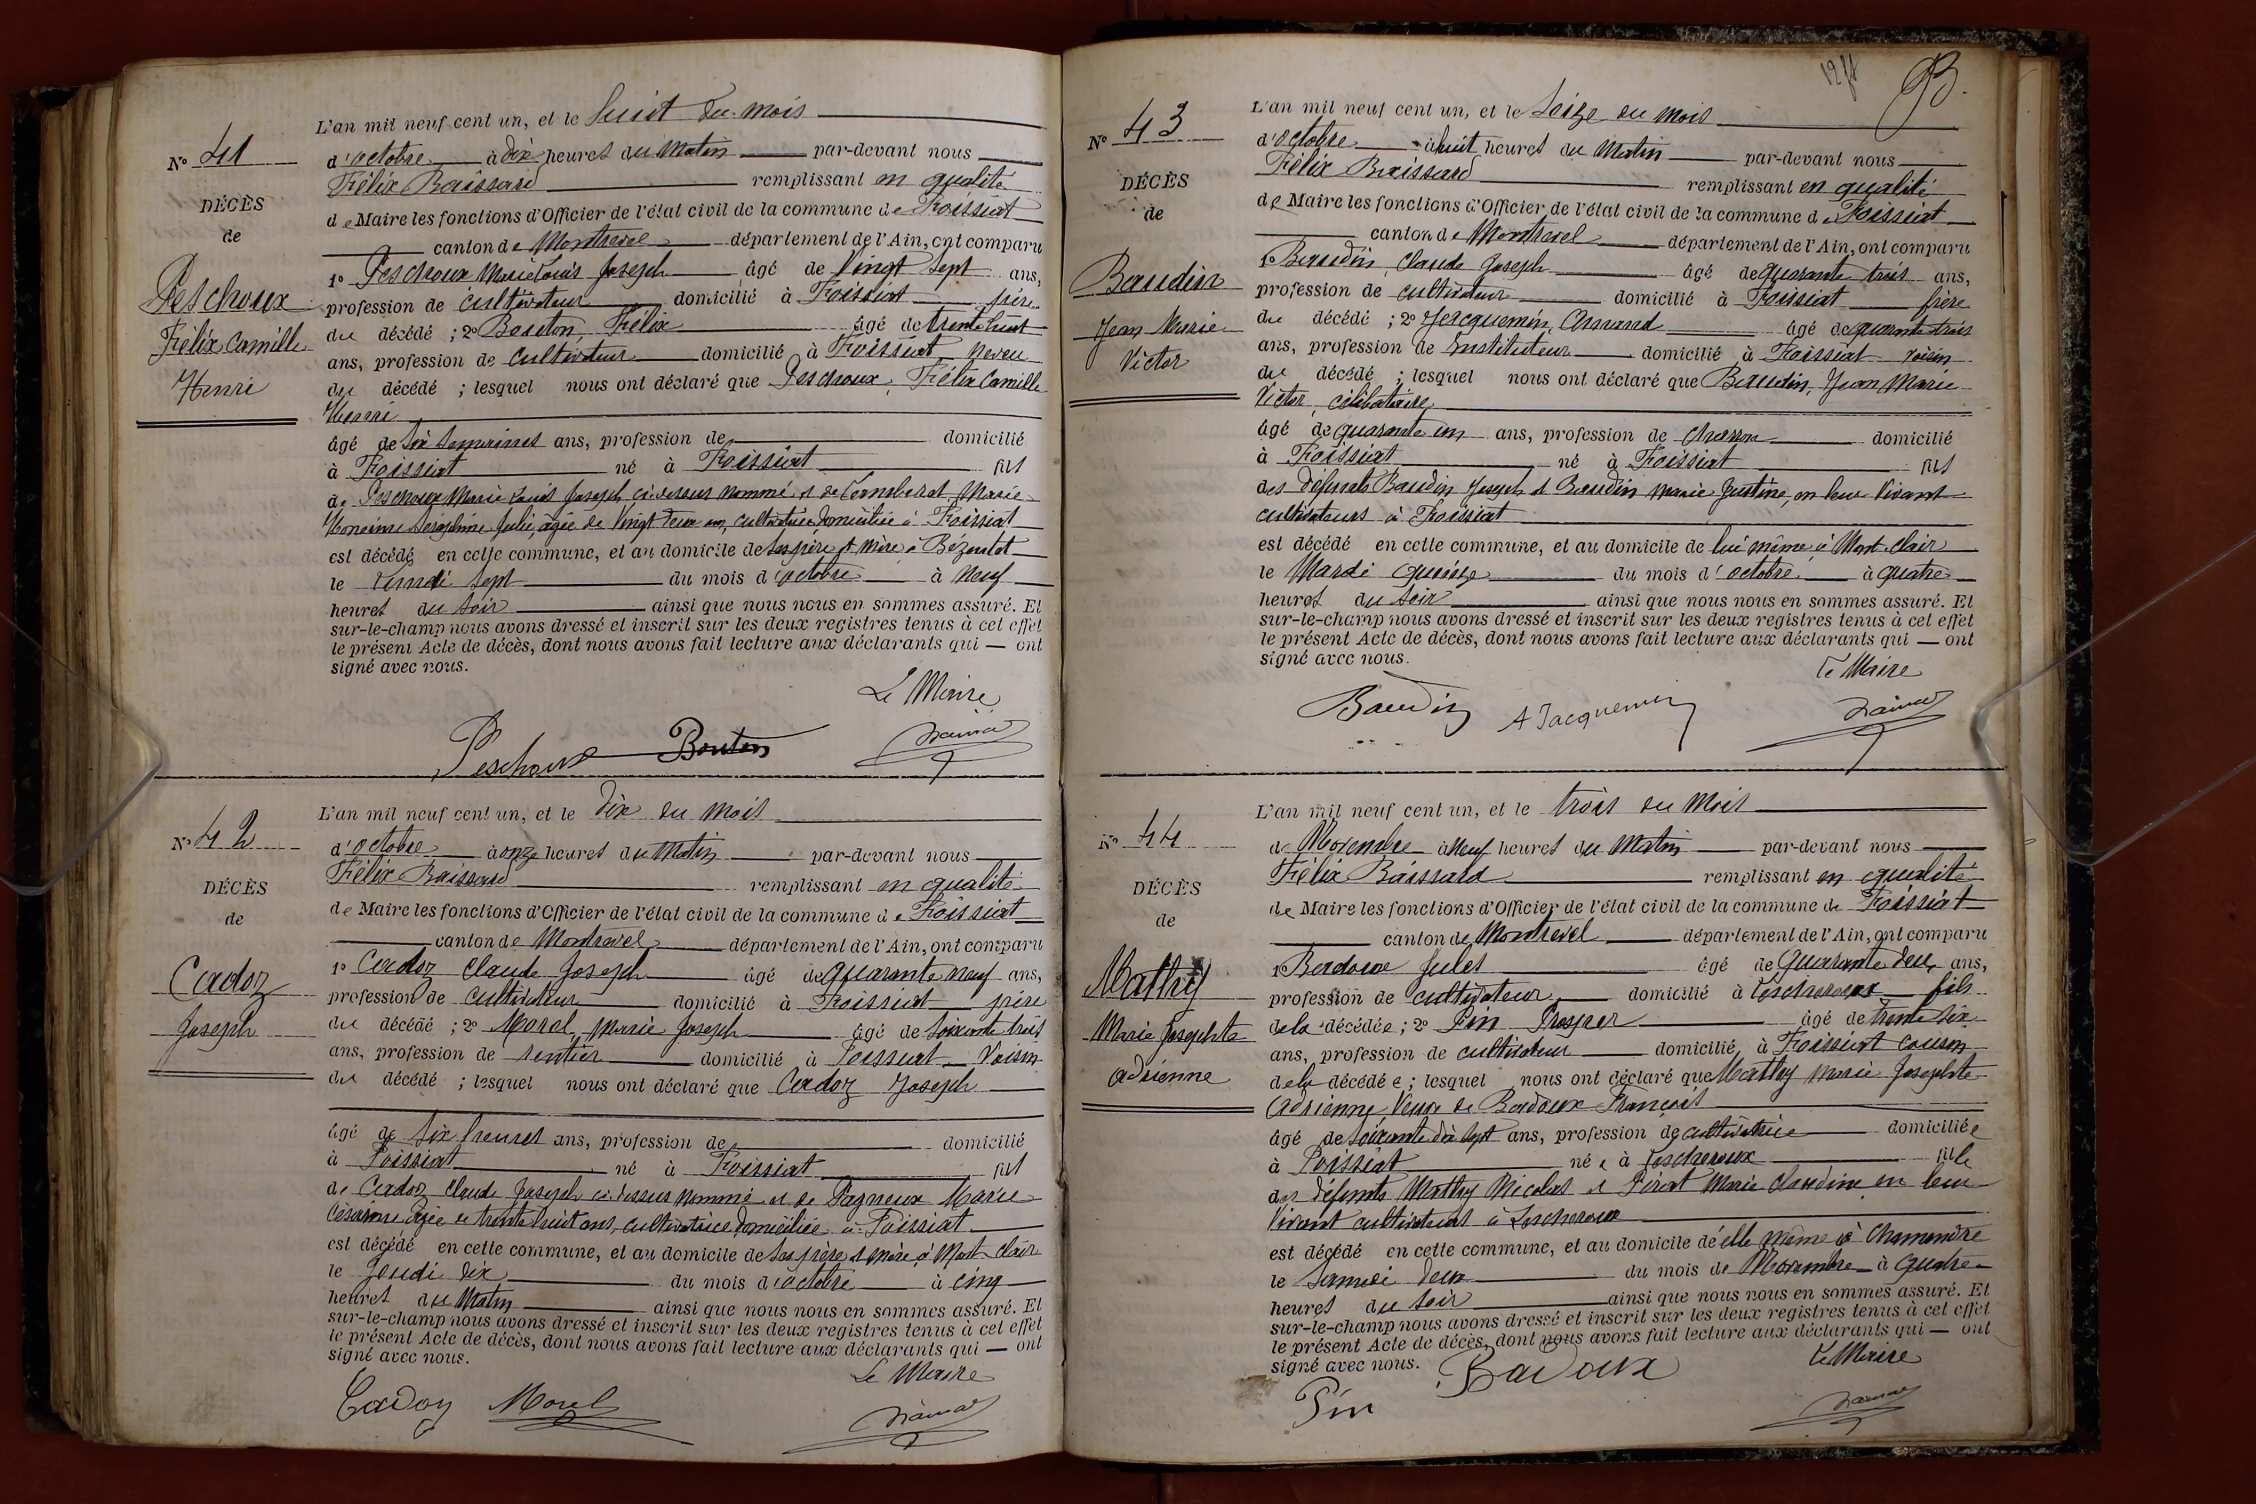 L'an mil neuf cent un, et le huit du mois
N° 41
d'octobre à dix heures du matin par-devant nous
Félix Baissard remplissant en qualité
DÉCÈS
de Maire les fonctions d'Officier de l'état civil de la commune de Foissiat
de
canton de Montrevel département de l'Ain, ont comparu
1° Peschoux Marie Louis Joseph âgé de Vingt sept ans,
Peschoux
profession de cultivateur domicilié à Foissiat père
du décédé ; 2° Bouton, Félix âgé de trente huit
Félix Camille
ans, profession de cultivateur domicilié à Foissiat neveu
Henri
du décédé ; lesquel nous ont déclaré que Peschoux, Félix Camille
Henri
âgé de six semaines ans, profession de domicilié
à Foissiat né à Foissiat fils
de Peschoux Marie Louis Joseph ci-dessus nommé et de Marie
Séraphine Julie, âgée de Vingt deux ans, cultivatrice domiciliée à Foissiat
est décédé en cette commune, et au domicile de ses père et mère à Bézentet
le lundi sept du mois d'octobre à neuf
heures du soir ainsi que nous nous en sommes assuré. Et
sur-le-champ nous avons dressé et inscrit sur les deux registres tenus à cet effet
le présent Acte de décès, dont nous avons fait lecture aux déclarants qui — ont
signé avec nous.
Le Maire
Peschoux Bouton
L'an mil neuf cent un, et le dix du mois
N° 42
d'octobre à onze heures du matin par-devant nous
Félix Baissard remplissant en qualité
DÉCÈS
de Maire les fonctions d'Officier de l'état civil de la commune de Foissiat
de
canton de Montrevel département de l'Ain, ont comparu
1° Cadoz Claude Joseph âgé de quarante neuf ans,
Cadoz
profession de cultivateur domicilié à Foissiat père
Joseph
du décédé ; 2° Morel, Marie Joseph âgé de soixante trois
ans, profession de rentier domicilié à Foissiat Voisin
du décédé ; lesquel nous ont déclaré que Cadoz Joseph
âgé de six heures ans, profession de domicilié
à Foissiat né à Foissiat fils
de Cadoz Claude Joseph ci-dessus nommé et de Pagneux Marie
Césarine âgée de trente huit ans, cultivatrice domiciliée à Foissiat
est décédé en cette commune, et au domicile de ses père et mère à Mont-Clair
le Jeudi dix du mois d'octobre à cinq
heures du matin ainsi que nous nous en sommes assuré. Et
sur-le-champ nous avons dressé et inscrit sur les deux registres tenus à cet effet
le présent Acte de décès, dont nous avons fait lecture aux déclarants qui — ont
signé avec nous.
Le Maire
Cadoz Morel
L'an mil neuf cent un, et le seize du mois
N° 43
d'octobre à huit heures du matin par-devant nous
Félix Baissard remplissant en qualité
DÉCÈS
de Maire les fonctions d'Officier de l'état civil de la commune de Foissiat
de
canton de Montrevel département de l'Ain, ont comparu
1° Baudin, Claude Joseph âgé de quarante trois ans,
Baudin
profession de cultivateur domicilié à Foissiat frère
du décédé ; 2° Jacquemin, Armand âgé de quarante trois
Jean Marie
ans, profession de Instituteur domicilié à Foissiat voisin
Victor
du décédé ; lesquel nous ont déclaré que Baudin, Jean Marie
Victor, célibataire
âgé de quarante un ans, profession de charron domicilié
à Foissiat né à Foissiat fils
des défunts Baudin Joseph et Baudin Marie Justine, en leur vivant
cultivateurs à Foissiat
est décédé en cette commune, et au domicile de lui même à Mont-Clair
le Mardi quinze du mois d'octobre à quatre
heures du soir ainsi que nous nous en sommes assuré. Et
sur-le-champ nous avons dressé et inscrit sur les deux registres tenus à cet effet
le présent Acte de décès, dont nous avons fait lecture aux déclarants qui — ont
signé avec nous.
Le Maire
Baudin A Jacquemin
L'an mil neuf cent un, et le trois du mois
N° 44
de Novembre à neuf heures du matin par-devant nous
Félix Baissard remplissant en qualité
DÉCÈS
de Maire les fonctions d'Officier de l'état civil de la commune de Foissiat
de
canton de Montrevel département de l'Ain, ont comparu
1° Badoux Jules âgé de quarante deux ans,
Mathy
profession de cultivateur domicilié à Lescheroux fils
Marie Josephte
de la décédée ; 2° Pin Prosper âgé de trente six
ans, profession de cultivateur domicilié à Foissiat cousin
Adrienne
de la décédée ; lesquel nous ont déclaré que Mathy Marie Josephte
Adrienne, Veuve de Badoux François
âgé de soixante dix sept ans, profession de cultivatrice domiciliée
à Foissiat née à Lescheroux fille
des défunts Mathy Nicolas et Perat Marie Claudine en leur
vivant cultivateurs à Lescheroux
est décédé en cette commune, et au domicile de elle même à Chamandre
le Samedi deux du mois de Novembre à quatre
heures du soir ainsi que nous nous en sommes assuré. Et
sur-le-champ nous avons dressé et inscrit sur les deux registres tenus à cet effet
le présent Acte de décès, dont nous avons fait lecture aux déclarants qui — ont
signé avec nous.
Le Maire
Pin Badoux